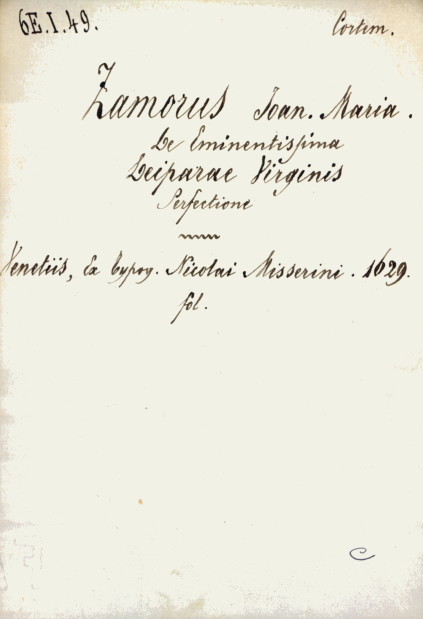 6E.I.49.
Cortem.
Zamorus Joan. Maria.
De Eminentissima
Deiparae Virginis
Perfectione
Venetiis, Ex typog. Nicolai Misserini. 1629.
fol.
C